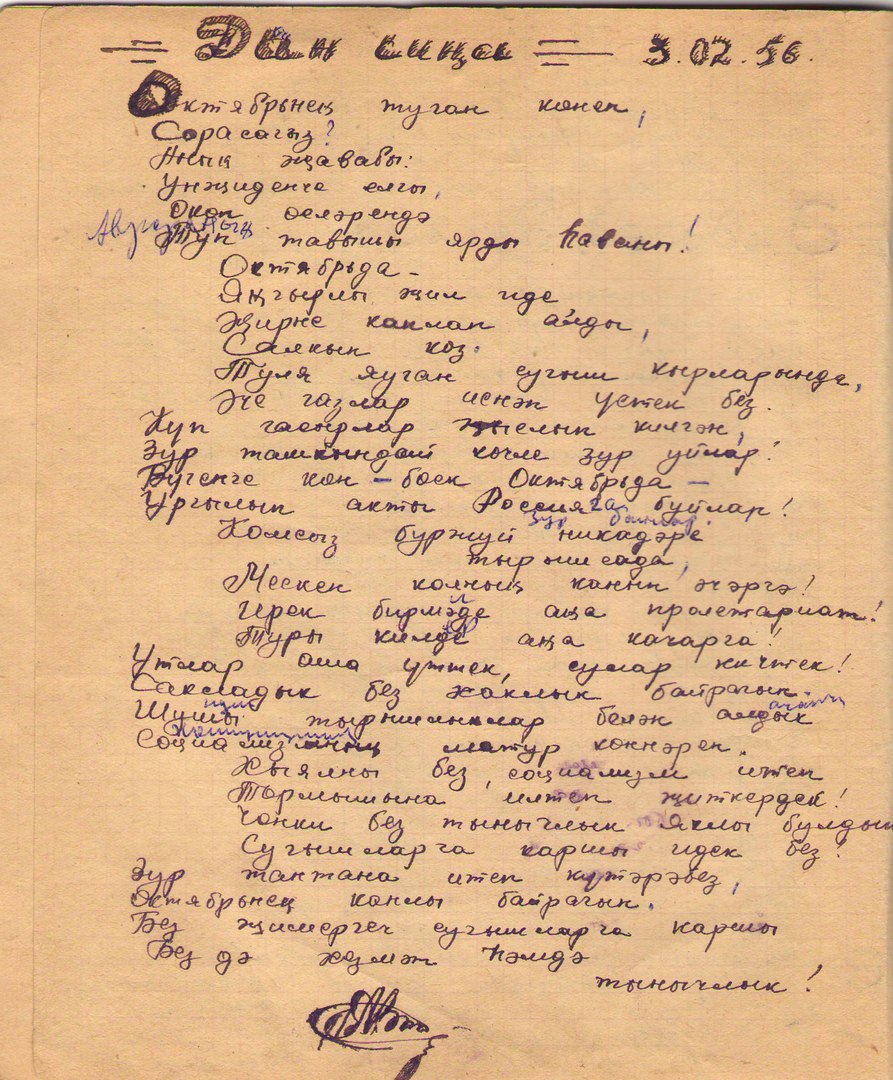 Дан сиңа 3.02.56.
Октябрьнең туган көнен,
Сорасагыз?
Анык җавабы:
Унҗиденче елгы,
Окоп өсләрендә
Аврораның
Туп тавышы ярды һаваны!
Октябрьда -
Яңгырлы җил иде
Җирне каплап алды,
Салкын көз.
Туля яуган сугыш кырларында,
Әче газлар иснәп үстек без.
Күп гасырлар җыелып килгән,
Зур ташкындай көчле зур уйлар!
Бүгенге көн - бөек Октябрьда -
Ургылып акты Россияга буйлар!
зур байлар.
Комсыз буржуй никадәре
тырышсада,
Мескен колның канын эчәргә!
Ирек бирмәде аңа пролетариат!
Туры килде аңа качарга!
Утлар аша үттек, сулар кичтек!
Сакладык без хаклык байрагын.
Шушы тырышлыклар белән алдык
Социализмның матур көннәрен.
Хыялны без, социализм итеп
Тормышына илтеп җиткердек!
Чөнки без тынычлык яклы булдык
Сугышларга каршы идек без!
Зур тантана итеп күтәрәбез,
Октябрьнең канлы байрагын.
Без җимергеч сугышларга каршы
Без дә хезмәт һәмдә
тынычлык!